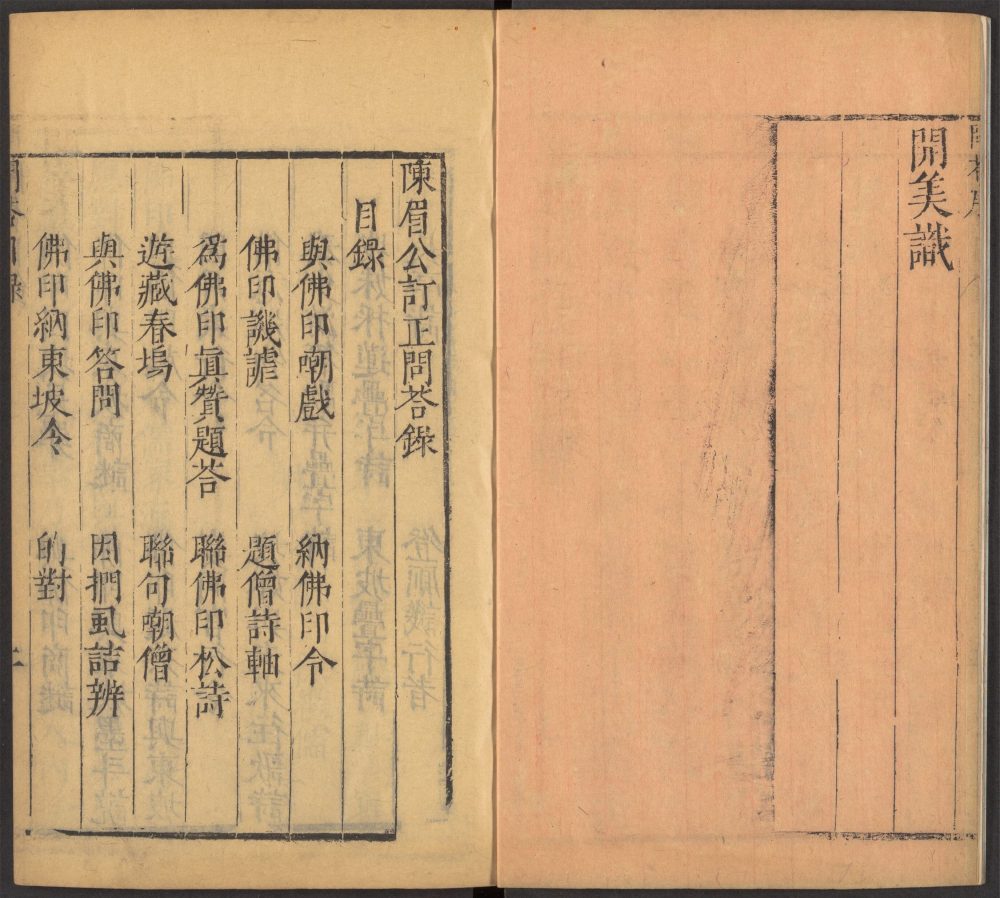 開美識
陳眉公訂正問荅錄
目錄
與佛印嘲戲 納佛印令
佛印譏謔 題僧詩軸
爲佛印眞贊題荅 聯佛印松詩
遊藏春塢 聯句嘲僧
與佛印答問 因捫虱詰辨
佛印納東坡令 的對